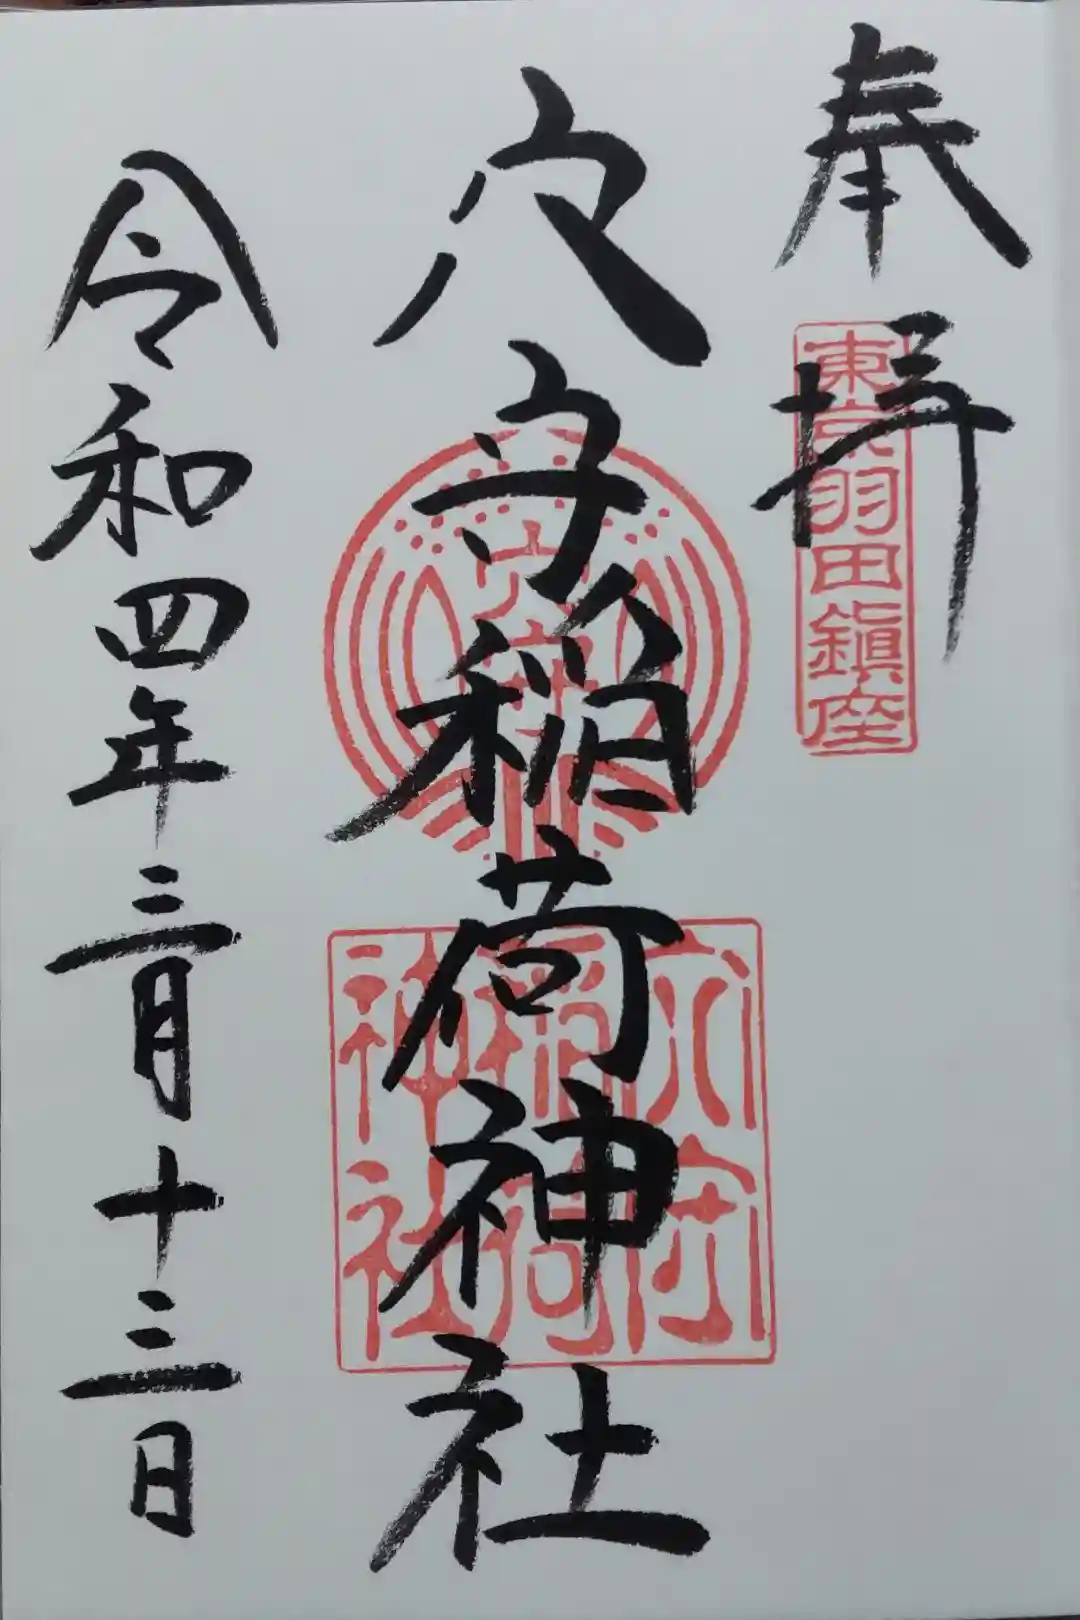 奉拝
東京羽田鎮座
穴守稲荷神社
穴守
穴守
稲荷
神社
令和四年三月十三日